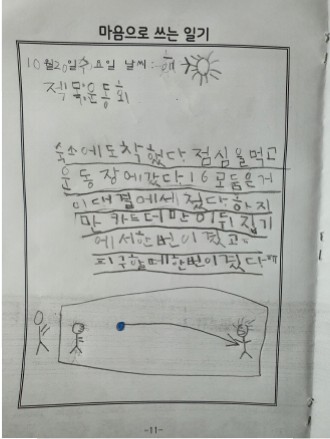 마음으로 쓰는 일기
10월20일수요일 날씨: 해
제목: 운동회
숙소에도착했다 점심을먹고
운동장에갔다. 16모둠은거
이대결에세 졌다. 하지
만 카트더만이뒤집기
에서한번이겼고
피구할때한번이겼다
-11-